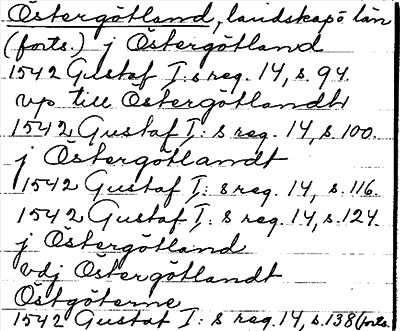 Östergötland, landskap o län
(forts.) j Östergötland
1542 Gustaf I: s reg. 14, s. 94.
vp till Östergötlandh
1542 Gustaf I: s reg. 14, s. 100.
j Östergötlandt
1542 Gustaf I: s reg. 14, s. 116.
1542 Gustaf I: s reg. 14, s. 124.
j Östergötland
vdj Östergötlandt
Östgöterne
1542 Gustaf I: s reg. 14, s. 138 (forts.